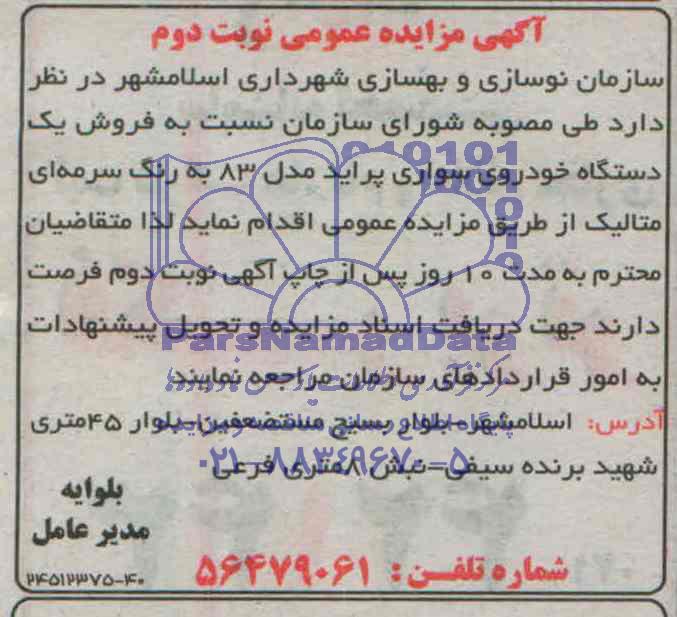 آگهی مزایده عمومی نوبت دوم
سازمان نوسازی و بهسازی شهرداری اسلامشهر در نظر
دارد طی مصوبه شورای سازمان نسبت به فروش یک
دستگاه خودروی سواری پراید مدل ۸۳ به رنگ سرمه‌ای
متالیک از طریق مزایده عمومی اقدام نماید لذا متقاضیان
محترم به مدت ۱۰ روز پس از چاپ آگهی نوبت دوم فرصت
دارند جهت دریافت اسناد مزایده و تحویل پیشنهادات
ParsNamadData
به امور قراردادهای سازمان مراجعه نمایند
آدرس: اسلامشهر-بلوار بسیج مستضعفین-بلوار ۴۵متری
شهید برنده سیفی-نبش ۸متری فرعی
۰۲۱-۸۸۳۴۹۶۷۰-۵
بلوایه
مدیر عامل
شماره تلفن: ۵۶۴۷۹۰۶۱
۲۴۵۱۲۳۷۵-۴۰